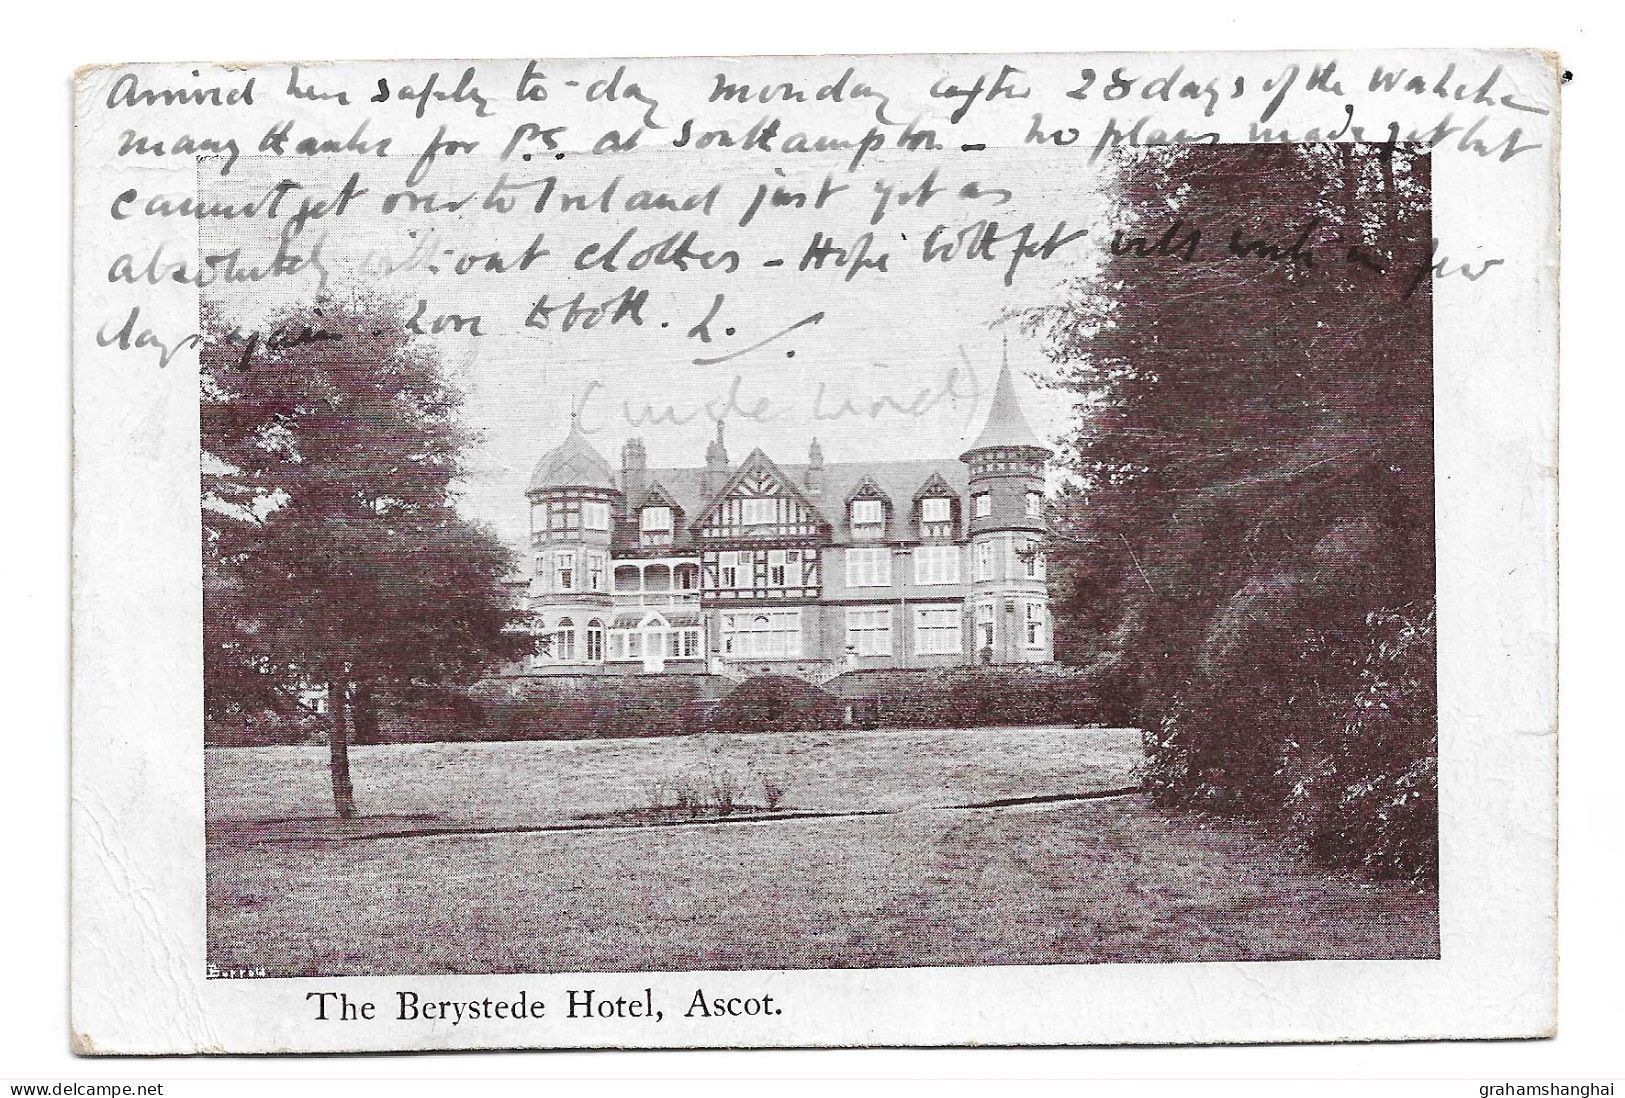 Arrived here safely to-day monday after 28 days of the
many thanks for P.C. at Southampton - no plans made yet but
cannot get over to Ireland just yet as
absolutely without clothes - Hope both get well with in few
days again. Love to both. L.
(uncle Lind)
Burrow
The Berystede Hotel, Ascot.
delcampe.net
grahamshanghai